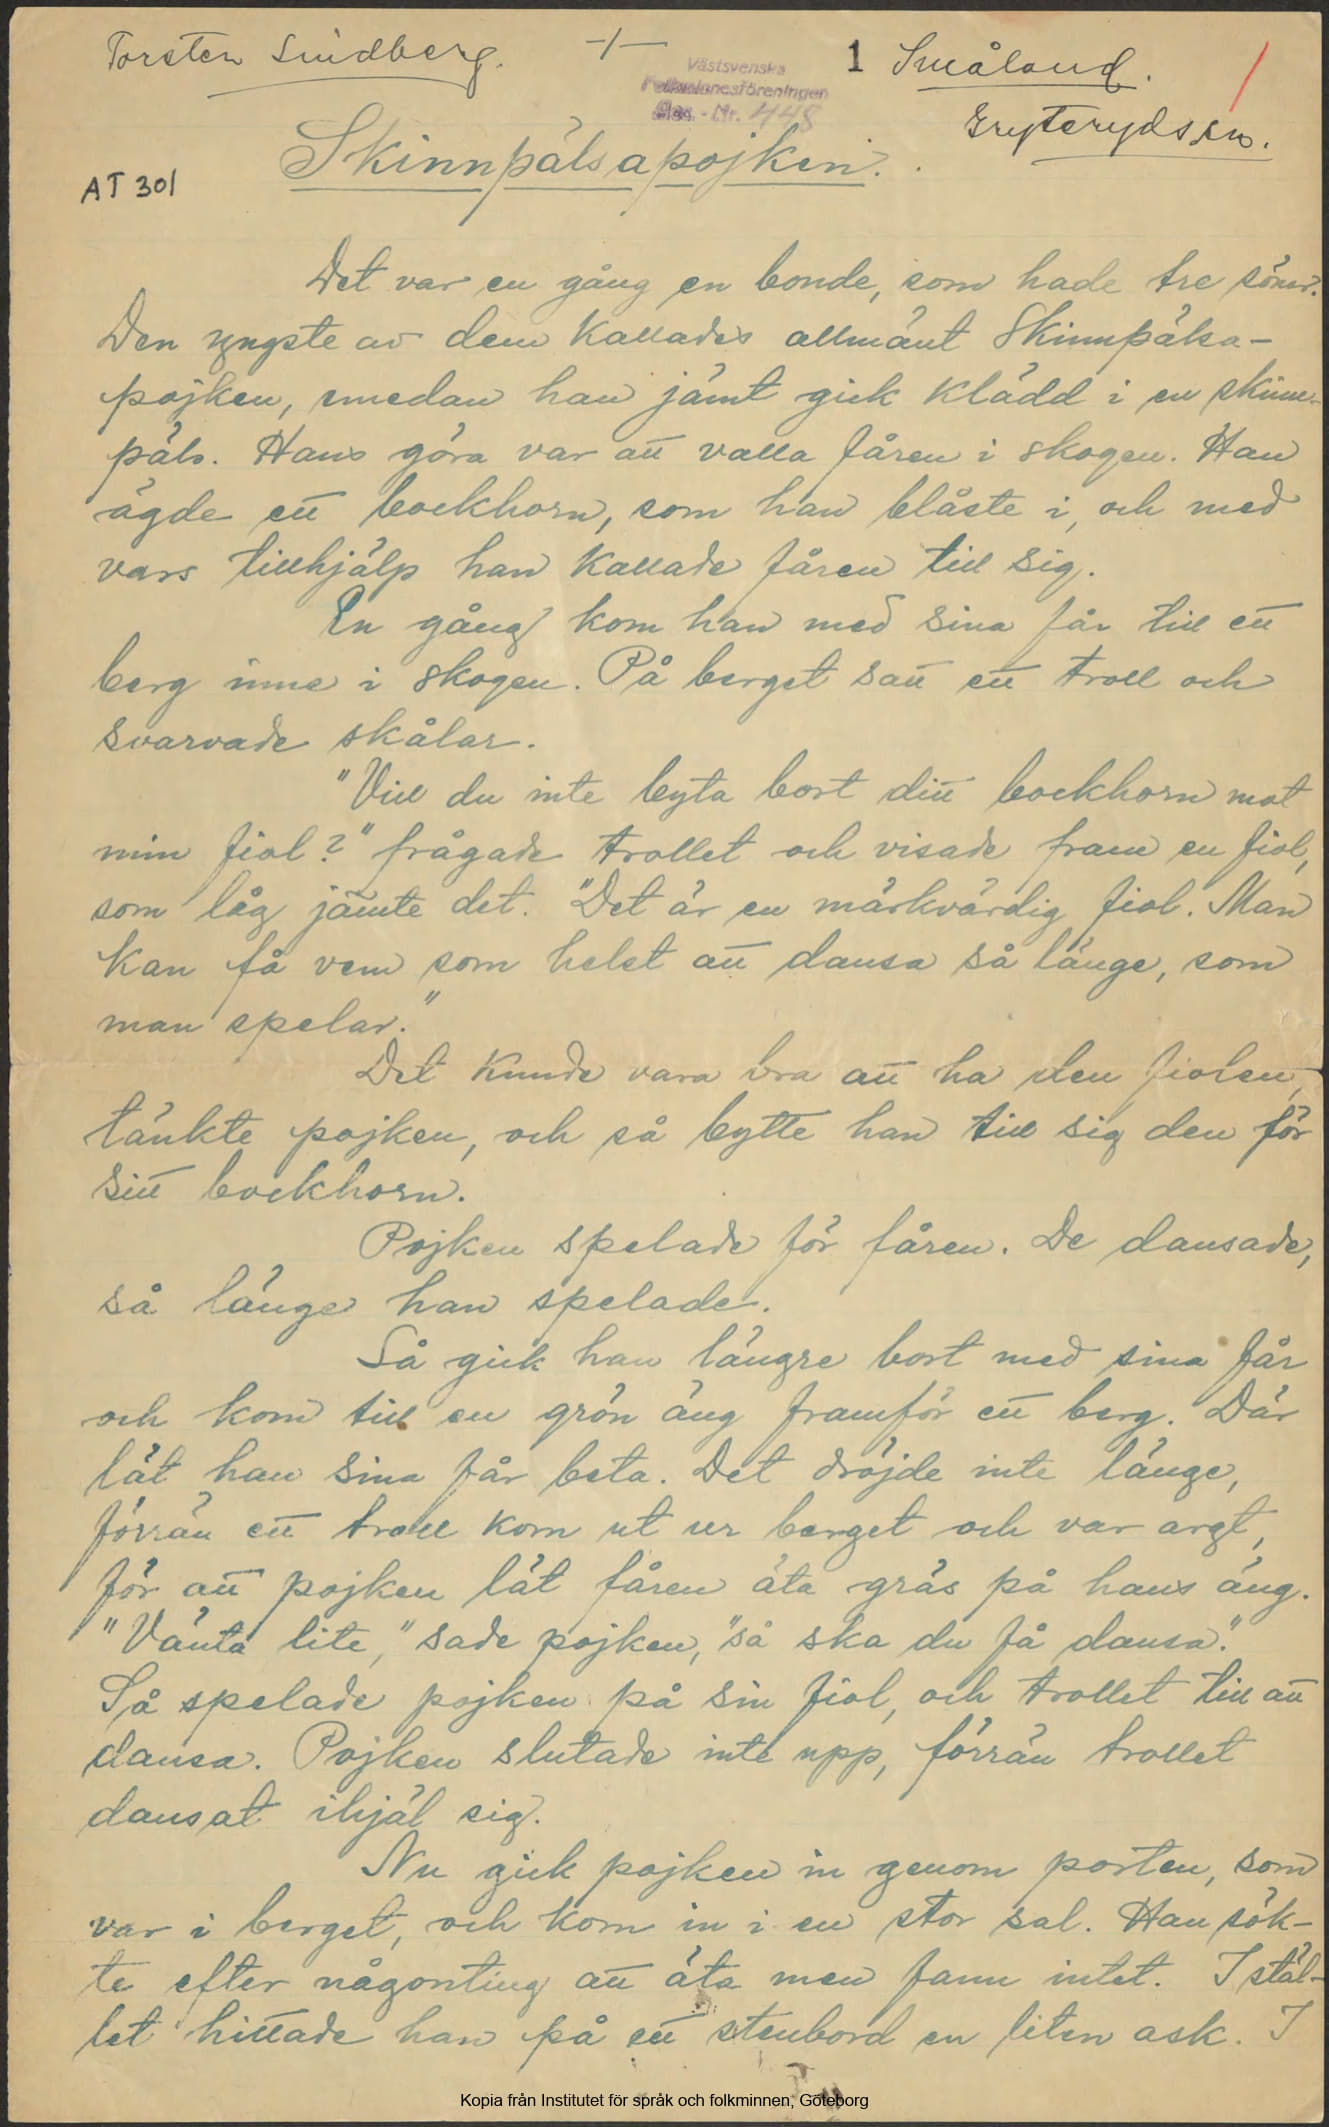 Torsten Lindberg. -/-
Västsvenska
Folkminnesföreningen
- Nr. 448
1 Småland.
Gryteryds sn.
Skinnpälsapojken.
AT 301
Det var en gång en bonde, som hade tre söner.
Den yngste av dem kallades allmänt Skinnpälsa-
pojken, emedan han jämt gick klädd i en skinn-
päls. Hans göra var att valla fåren i skogen. Han
ägde ett bockhorn, som han blåste i, och med
vars tillhjälp han kallade fåren till sig.
En gång kom han med sina får till ett
berg inne i skogen. På berget satt ett troll och
svarvade skålar.
"Vill du inte byta bort ditt bockhorn mot
min fiol?" frågade trollet och visade fram en fiol,
som låg jämte det. "Det är en märkvärdig fiol. Man
kan få vem som helst att dansa så länge, som
man spelar."
Det kunde vara bra att ha den fiolen,
tänkte pojken, och så bytte han till sig den för
sitt bockhorn.
Pojken spelade för fåren. De dansade,
så länge han spelade.
Så gick han längre bort med sina får
och kom till en grön äng framför ett berg. Där
lät han sina får beta. Det dröjde inte länge,
förrän ett troll kom ut ur berget och var argt,
för att pojken lät fåren äta gräs på hans äng.
"Vänta lite," sade pojken, "så ska du få dansa."
Så spelade pojken på sin fiol, och trollet till att
dansa. Pojken slutade inte upp, förrän trollet
dansat ihjäl sig.
Nu gick pojken in genom porten, som
var i berget, och kom in i en stor sal. Han sök-
te efter någonting att äta men fann intet. I stäl-
let hittade han på ett stenbord en liten ask. I
Kopia från Institutet för språk och folkminnen, Göteborg